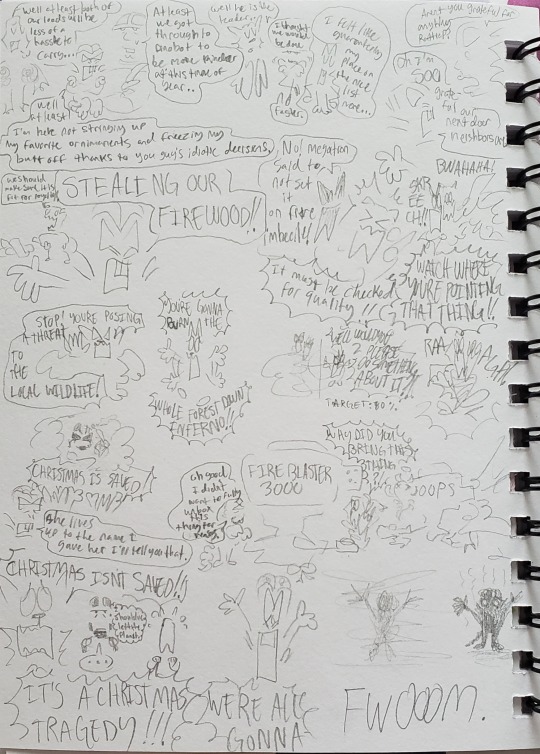 well at least both of
our loads will be
less of a
hassle to
carry...
At least
we got
through to
Dinobot to
be more
at this time of
year..
well he is the
leader..
I thought
we would
be done
faster.
I felt like
guaranteeing
my
place on
the nice
list
more...
Aren't you grateful for
anything
Rattrap?
Oh I'm
SOOO
grate
ful our
next door
neighbors are
well
at least
I'm here not stringing up
my favorite ornaments and freezing my
butt off thanks to you guys idiotic decisions.
we should
make sure it is
fit for
STEALING OUR
FIREWOOD!!
No! Megatron
said to
not set
it
on fire
imbecile!
BWAHAHA!
SKR
EE
CH!!
It must be checked
for quality!!
WATCH WHERE
YOU'RE POINTING
THAT THING!!
STOP! YOU'RE POSING
A THREAT
TO
THE
LOCAL WILDLIFE!
YOU'RE GONNA
BURN THE
WHOLE FOREST DOWN
INFERNO!!
WELL WOULD
YOU
2 PLEASE
DO SOMETHING
ABOUT IT!!
RAA
TARGET:80%
CHRISTMAS IS SAVED
oh good
I didn't
want to fully
unbox
this
thing for
FIRE BLASTER
3000
WHY DID YOU
BRING THIS
THING
OOPS
She lives
up to the name I
gave her I'll tell you that.
CHRISTMAS ISN'T SAVED!!
should've
left the
planet
IT'S A CHRISTMAS
TRAGEDY!!!
WE'RE ALL
GONNA
FWOOOM.